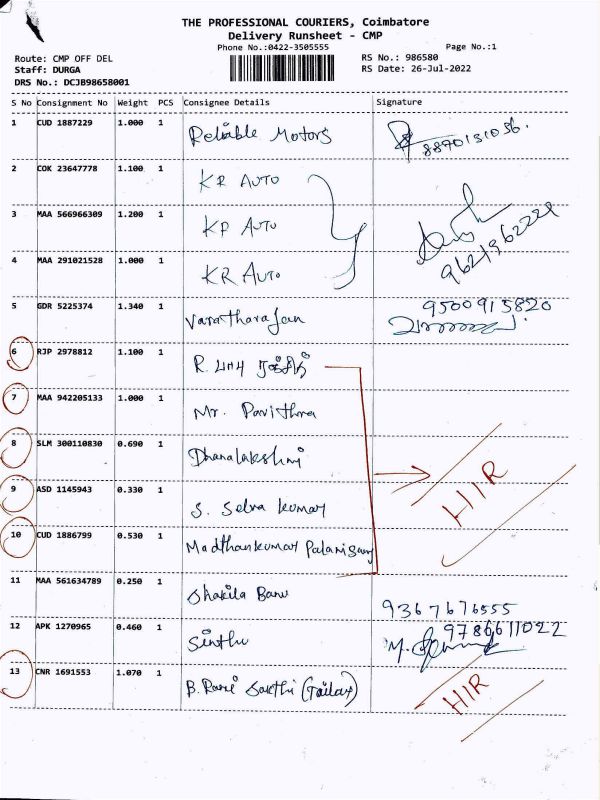 THE PROFESSIONAL COURIERS, Coimbatore
Delivery Runsheet - CMP
Phone No.:0422-3505555
Page No.:1
Route: CMP OFF DEL
RS No.: 986580
Staff: DURGA
RS Date: 26-Jul-2022
DRS No.: DCJB98658001
S No Consignment No Weight PCS Consignee Details Signature
1 CUD 1887229 1.000 1 Reliable Motors 8870131036.
2 COK 23647778 1.100 1 KR AUTO
3 MAA 566966309 1.200 1 KR AUTO
4 MAA 291021528 1.000 1 KR AUTO
5 GDR 5225374 1.340 1 Varatharajan 9500915820
6 RJP 2978812 1.100 1 R.
7 MAA 942205133 1.000 1 Mr. Pavithra
8 SLM 300110830 0.690 1 Dhanalakshmi
9 ASD 1145943 0.330 1 S. Selva kumar
HIR
10 CUD 1886799 0.530 1 Madthankumar Palanisamy
11 MAA 561634789 0.250 1 Shakila Banu 9367676555
12 APK 1270965 0.460 1 Sinthu 9786611022
13 CNR 1691553 1.070 1 B. Rani Sakthi (Tailar) HIR